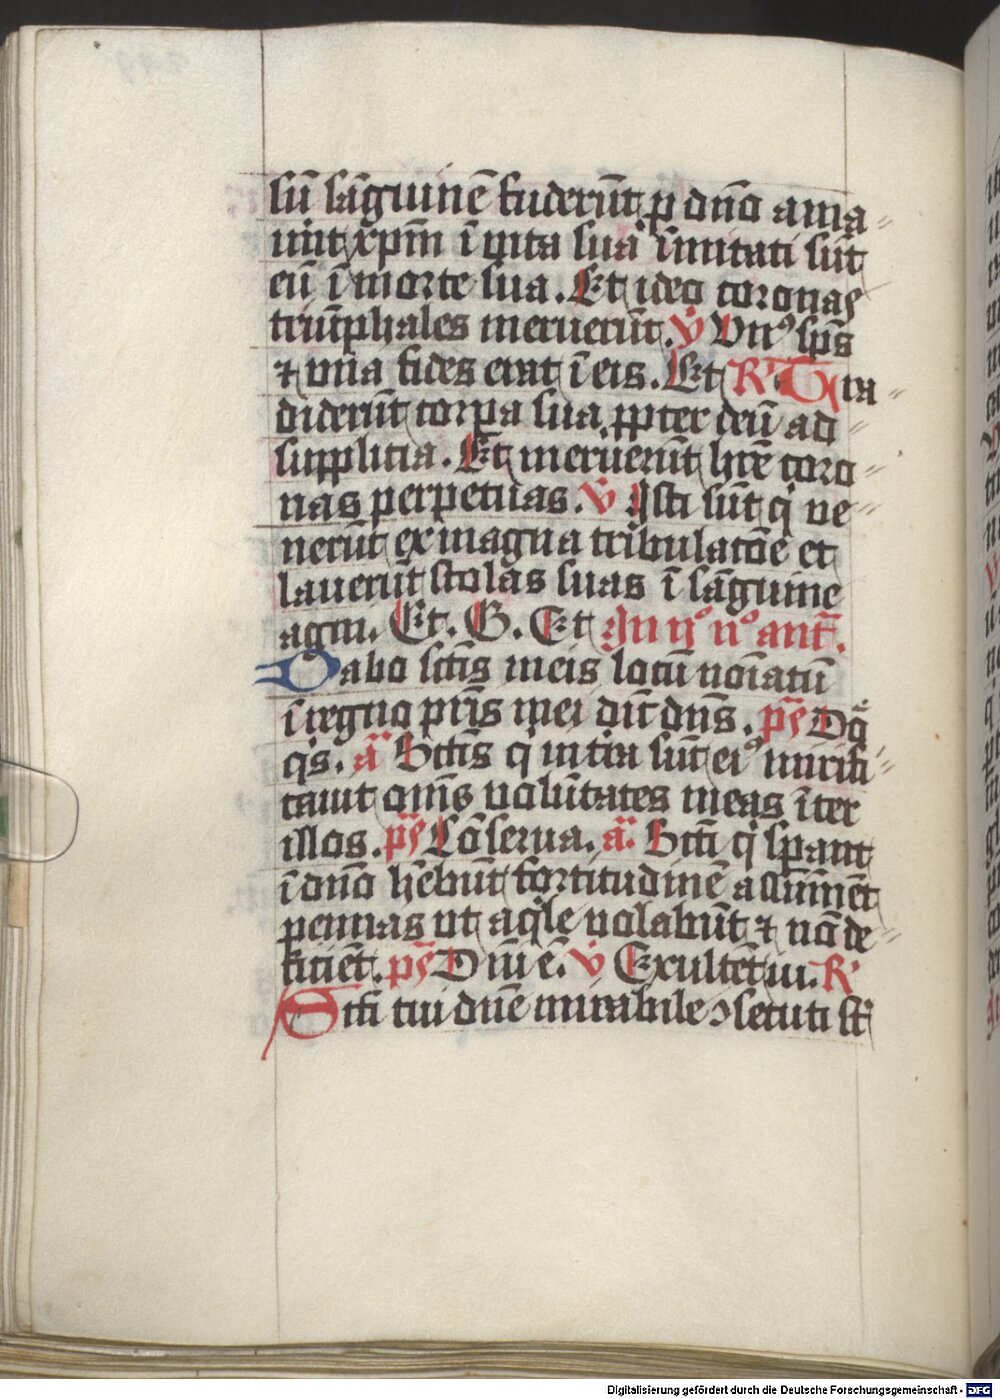 sū sāguinē fuderūt p dn̄o ama
uit xp̄m ī uita sua īmitati sūt
eū ī morte sua. Et ideo coronas
triūphales meruerūt. V Vnꝰ sps̄
⁊ vna fides erat ī eis. Et R Tra
diderūt corpa sua ppter deū ad
supplicia. Et meruerūt hr̄e coro
nas perpetuas. V Isti sūt q ve
nerūt ex magna tribulatōe et
lauerūt stolas suas ī sāguine
agni. Et. G. Et In ijͦ nͦ ant̄.
Dabo sctīs meis locū noīatū
ī regno pr̄is mei dīt dn̄s. ps̄ Dn̄e
q̇s. a Sctīs q in tra sūt eiꝰ mirifi
cauit om̄s volūtates meas īter
illos. ps̄ Cōserua. a Scti q spant
ī dn̄o hēbūt fortitudinē assūmēt
pennas ut aqle uolabūt ⁊ nō de
ficiēt. ps̄ Dn̄i ē. V Exultēt iu. R
Scti tui dn̄e mirabile ↄsecuti st̄
Digitalisierung gefördert durch die Deutsche Forschungsgemeinschaft - DFG